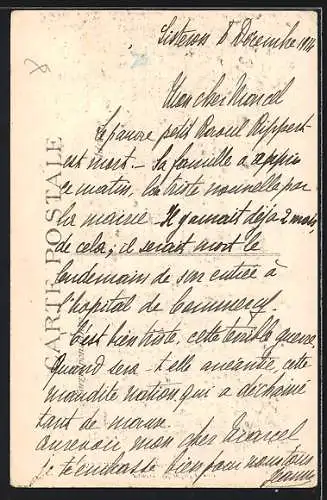 Sisteron 8 Decembre 1914
Mon cher Marcel
Le pauvre petit Raoul Rippert
est mort — Sa famille a appris
ce matin, la triste nouvelle par
la mairie. Il y aurait déjà 2 mois
de cela; il serait mort le
lendemain de son entrée à
l'hopital de Commercy.
C'est bien triste, cette terrible guerre,
Quand sera-t-elle anéantie, cette
maudite nation qui a déchainé
tant de maux.
au revoir mon cher Marcel
je t'embrasse bien pour nous tous
Jeanne
CARTE POSTALE